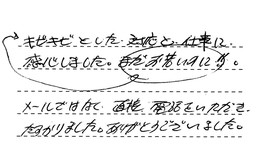 キビキビとした 対応と 仕事に
感心しました。まだお若いのに
メールではなく 直接 電話をいただき
たすかりました。ありがとうございました。